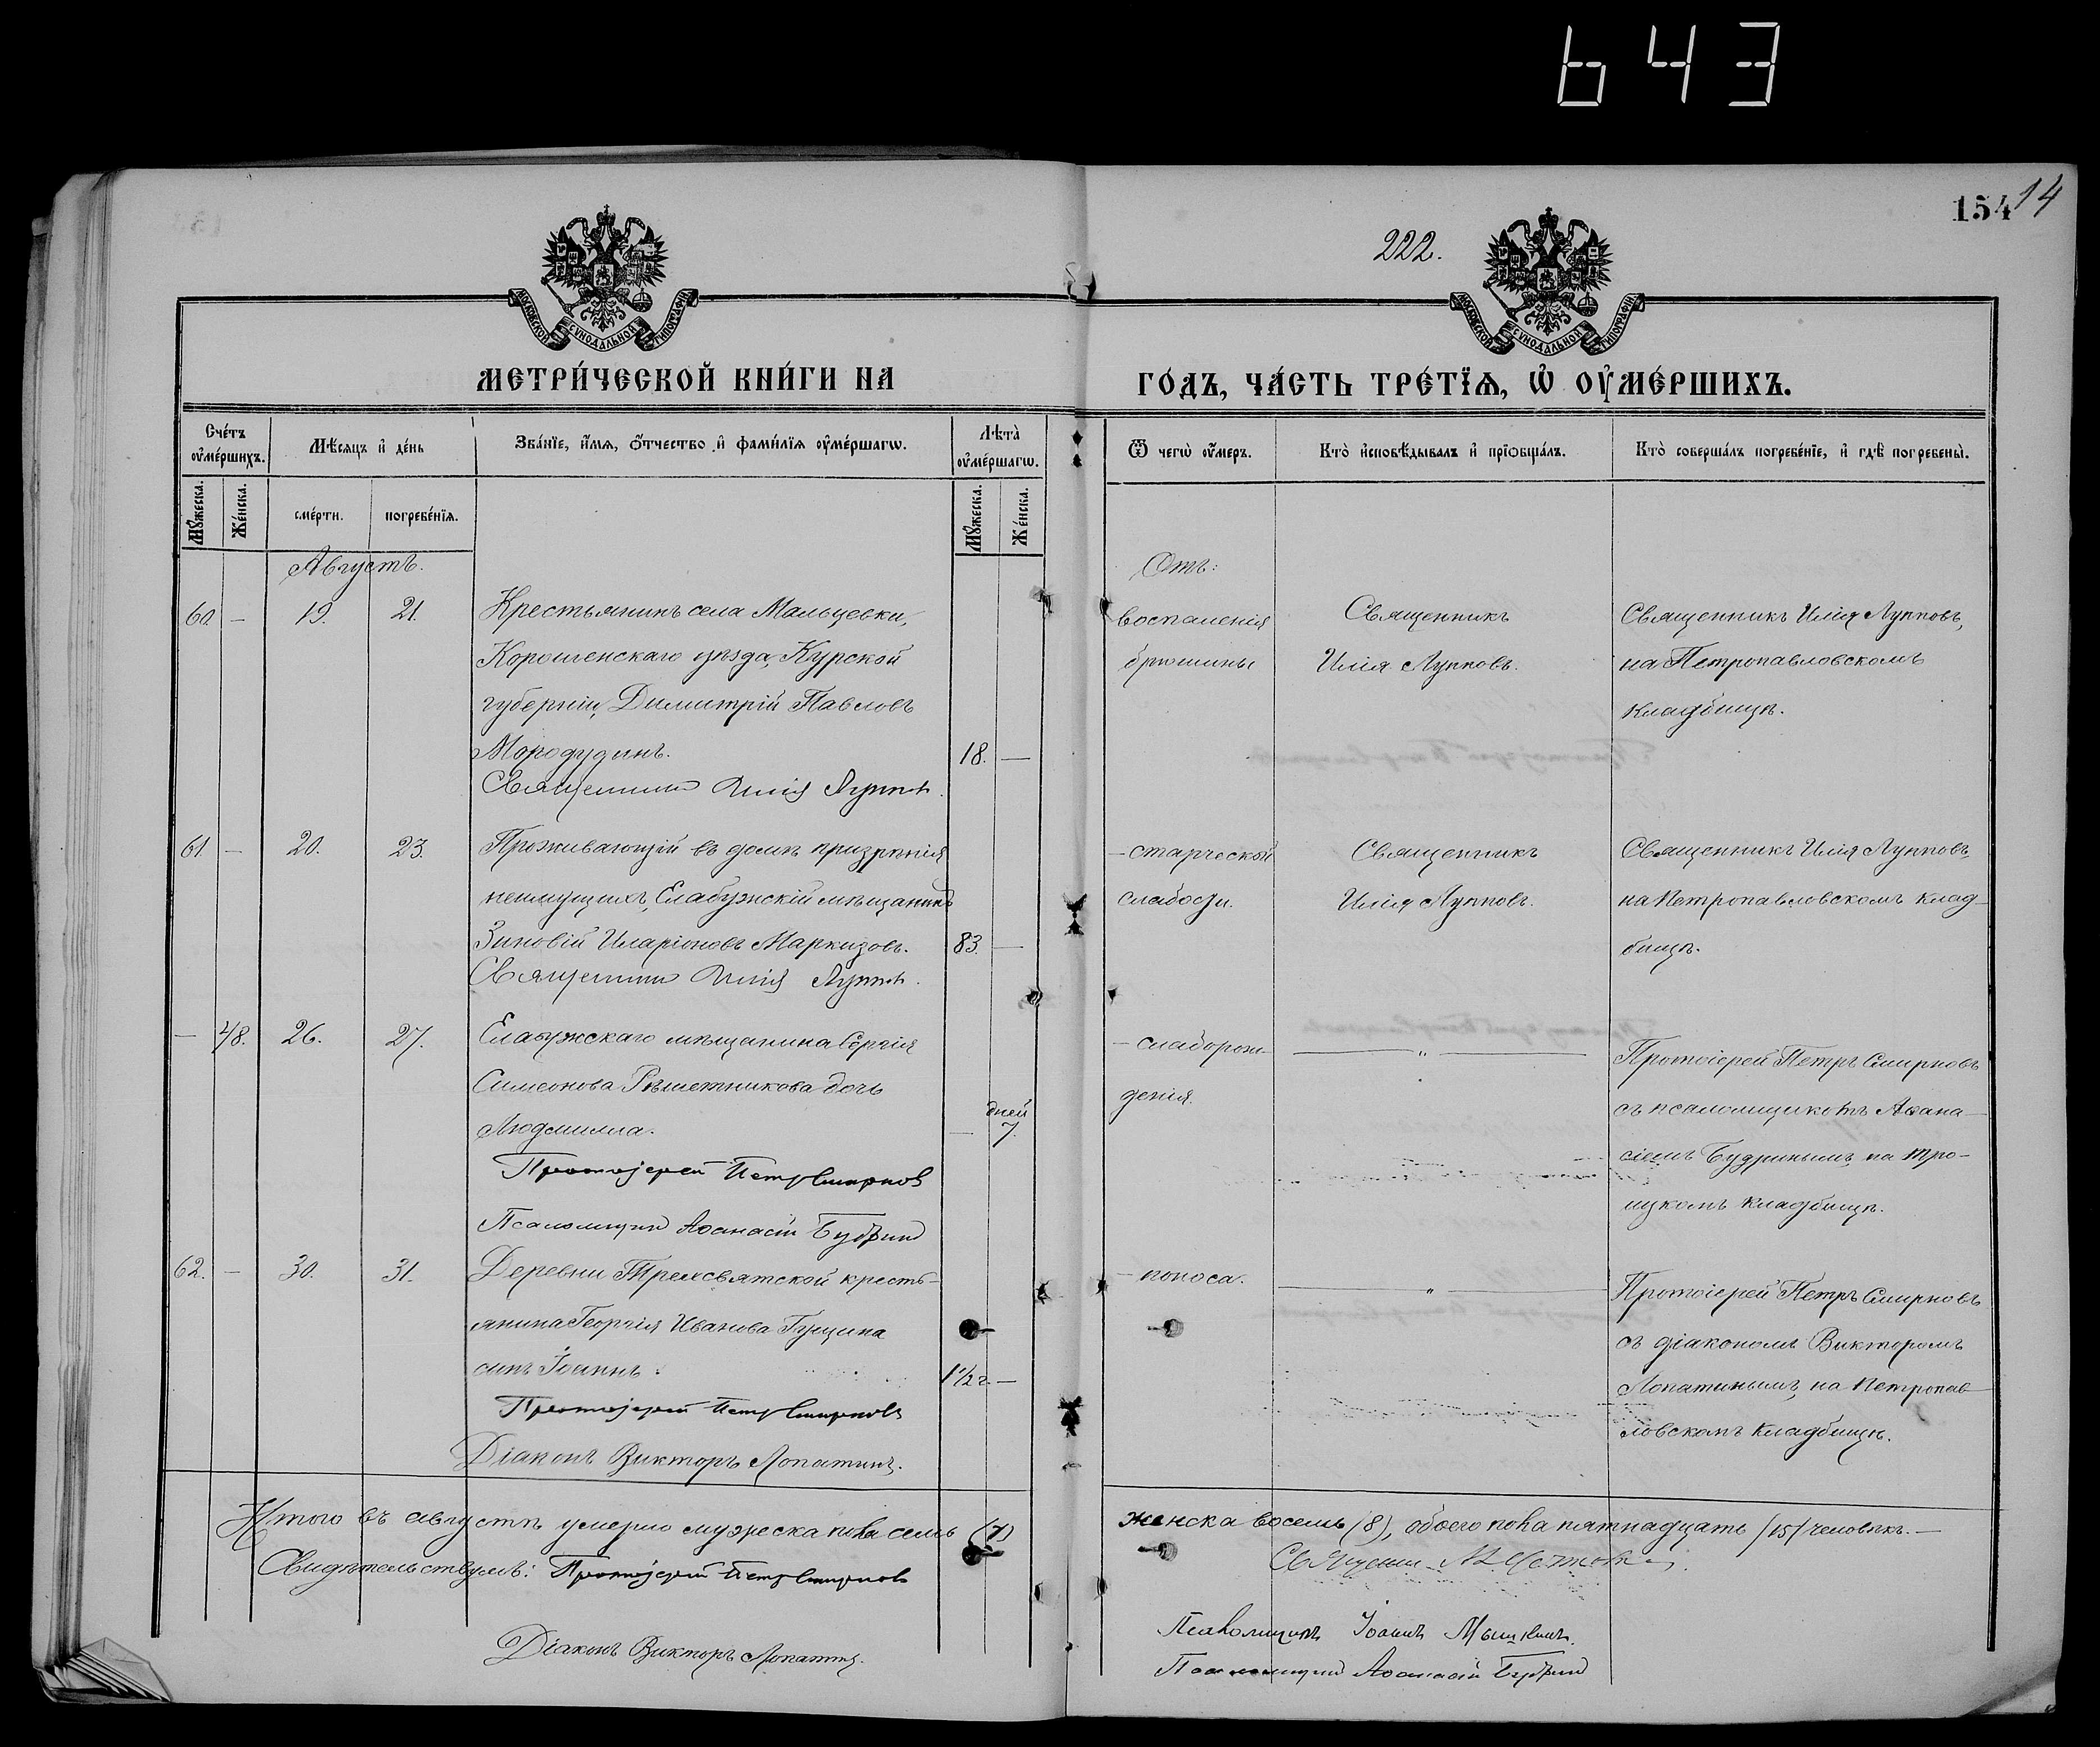 643
154 14
222.
МОСКОВСКОЙ СѴНОДАЛЬНОЙ ТИПОГРАФІИ
МОСКОВСКОЙ СѴНОДАЛЬНОЙ ТИПОГРАФІИ
МЕТРИ́ЧЕСКОЙ КНИ́ГИ НА
ГО́ДЪ, ЧА́СТЬ ТРЕ́ТЇѦ, Ѡ҆ ОУ҆МЕ́РШИХЪ.
Сче́тъ оу҆ме́ршихъ.
Мѣ́сяцъ и҆ де́нь
Зва́нїе, и҆́мѧ, ѻ҆́тчество и҆ фами́лїѧ оу҆ме́ршагѡ.
Лѣ́та оу҆ме́ршагѡ.
Ѿ чегѡ̀ оу҆́меръ.
Кто̀ и҆сповѣ́дывалъ и҆ прїѻбща́лъ.
Кто̀ соверша́лъ погребе́нїе, и҆ гдѣ̀ погребены̀.
Мꙋ́жеска.
Же́нска.
сме́рти.
погребе́нїѧ.
Мꙋ́жеска.
Же́нска.
Августъ.
Отъ:
60. — 19. 21. Крестьянинъ села Мальцевки,
Корошенскаго уѣзда, Курской
губерніи, Димитрій Павловъ
18. —
Священникъ Илія Лупповъ.
воспаленія
брюшины
Священникъ
Илія Лупповъ.
Священникъ Илія Лупповъ,
на Петропавловскомъ
кладбищѣ.
61. — 20. 23. Проживающій въ домѣ призрѣнія
неимущихъ, Елабужскій мѣщанинъ
Зиновій Иларіоновъ Маркизовъ. 83. —
Священникъ Илія Лупповъ.
— старческой
слабости.
Священникъ
Илія Лупповъ.
Священникъ Илія Лупповъ,
на Петропавловскомъ клад-
бищѣ.
— 48. 26. 27. Елабужскаго мѣщанина Сергія
Симеонова Рѣшетникова дочь
Людмилла. — дней 7.
Протоіерей Петръ Смирновъ
Псаломщикъ Аѳанасій Будринъ
— слаборож-
денія.
— „ —
Протоіерей Петръ Смирновъ
съ псаломщикомъ Аѳана-
сіемъ Будринымъ, на Тро-
ицкомъ кладбищѣ.
62. — 30. 31. Деревни Трехсвятской кресть-
янина Георгія Иванова Гущина
сынъ Іоаннъ. 1½ г. —
Протоіерей Петръ Смирновъ
Діаконъ Викторъ Лопатинъ.
— поноса.
— „ —
Протоіерей Петръ Смирновъ
съ діакономъ Викторомъ
Лопатинымъ, на Петропав-
ловскомъ кладбищѣ.
Итого въ августѣ умерло мужеска пола семь (7)
женска восемь (8), обоего пола пятнадцать (15) человѣкъ. —
Свидѣтельствуемъ: Протоіерей Петръ Смирновъ
Діаконъ Викторъ Лопатинъ.
Псаломщикъ Іоаннъ Мышкинъ.
Псаломщикъ Аѳанасій Будринъ